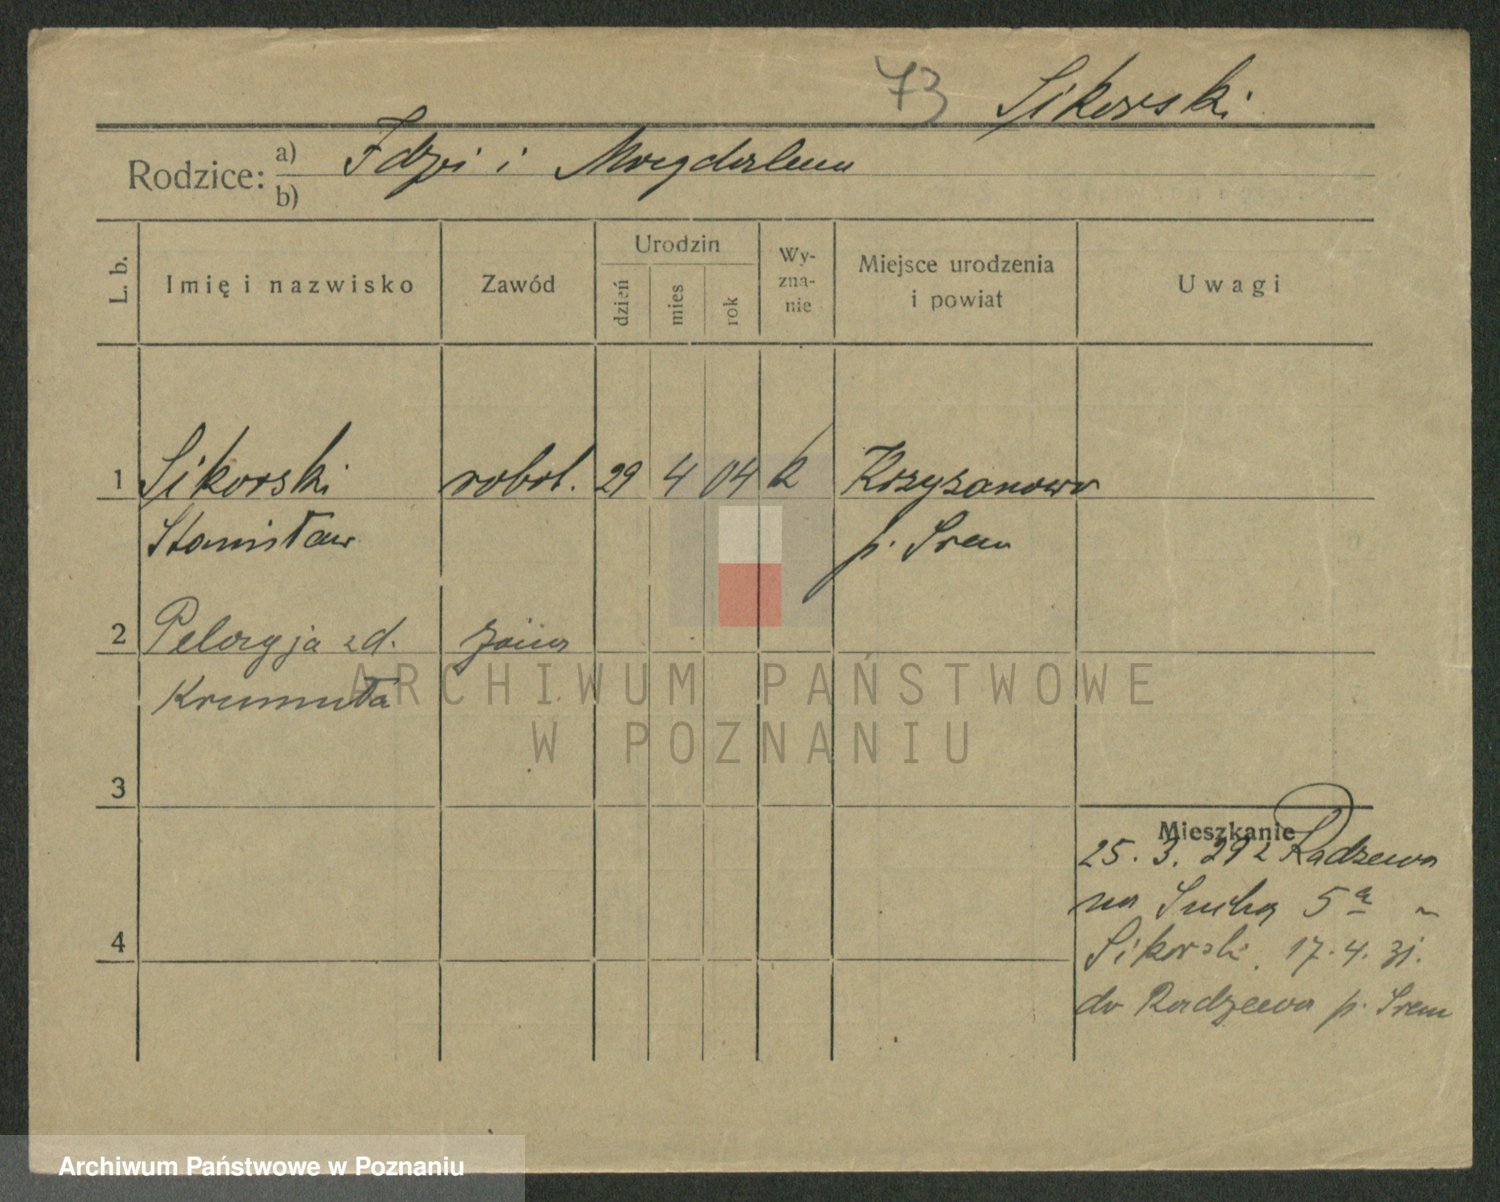 73 Sikorski
Rodzice: a) Idzi i Magdalena
b)
L. b.
Imię i nazwisko
Zawód
Urodzin
dzień
mies
rok
Wy-
zna-
nie
Miejsce urodzenia
i powiat
Uwagi
1 Sikorski robot. 29 4 04 k Krzyżanowo
Stanisław p. Śrem
2 Pelagja zd. żona
ARCHIWUM PAŃSTWOWE
W POZNANIU
3
Mieszkanie
25. 3. 29 z Radzewa
na Suchą 5a
4
Sikorski. 17. 4. 31.
do Radzewa p. Śrem
Archiwum Państwowe w Poznaniu